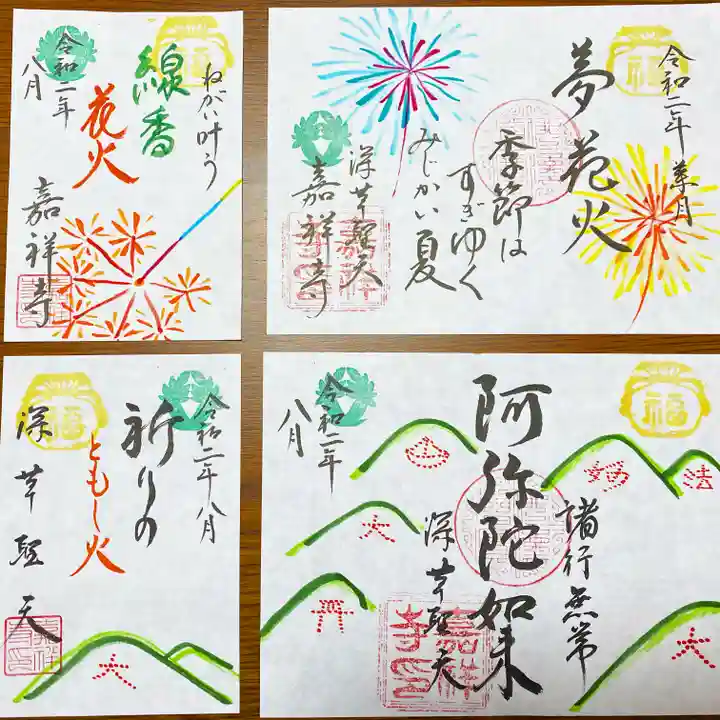 ねがい叶う
線香
花火
令和二年
八月
嘉祥寺
令和二年 葉月
夢花火
季節は
すぎゆく
みじかい夏
深草聖天
嘉祥寺
福
令和二年八月
祈りの
ともし火
深草聖天
福
大
福
諸行無常
阿弥陀如来
深草聖天
令和二年
八月
妙
法
大
大
嘉祥
寺印